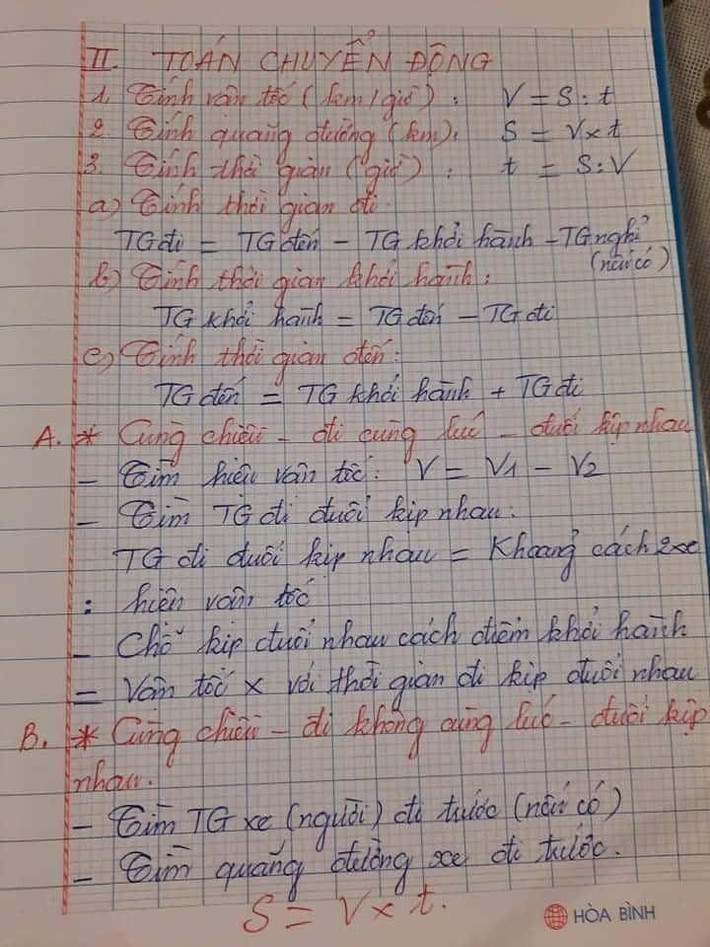 II. TOÁN CHUYỂN ĐỘNG
1. Tính vận tốc (km/giờ): V = S : t
2. Tính quãng đường (km): S = V x t
3. Tính thời gian (giờ): t = S : V
a) Tính thời gian đi.
TG đi = TG đến - TG khởi hành - TG nghỉ
(nếu có)
b) Tính thời gian khởi hành:
TG khởi hành = TG đến - TG đi
c) Tính thời gian đến:
TG đến = TG khởi hành + TG đi
A. * Cùng chiều - đi cùng lúc - đuổi kịp nhau
- Tìm hiệu vận tốc: V = V1 - V2
- Tìm TG đi đuổi kịp nhau:
TG đi đuổi kịp nhau = Khoảng cách 2 xe
: hiệu vận tốc
- Chỗ kịp đuổi nhau cách điểm khởi hành
= Vận tốc x với thời gian đi kịp đuổi nhau
B. * Cùng chiều - đi không cùng lúc - đuổi kịp
nhau.
- Tìm TG xe (người) đi trước (nếu có)
- Tìm quãng đường xe đi trước.
S = V x t.
HÒA BÌNH